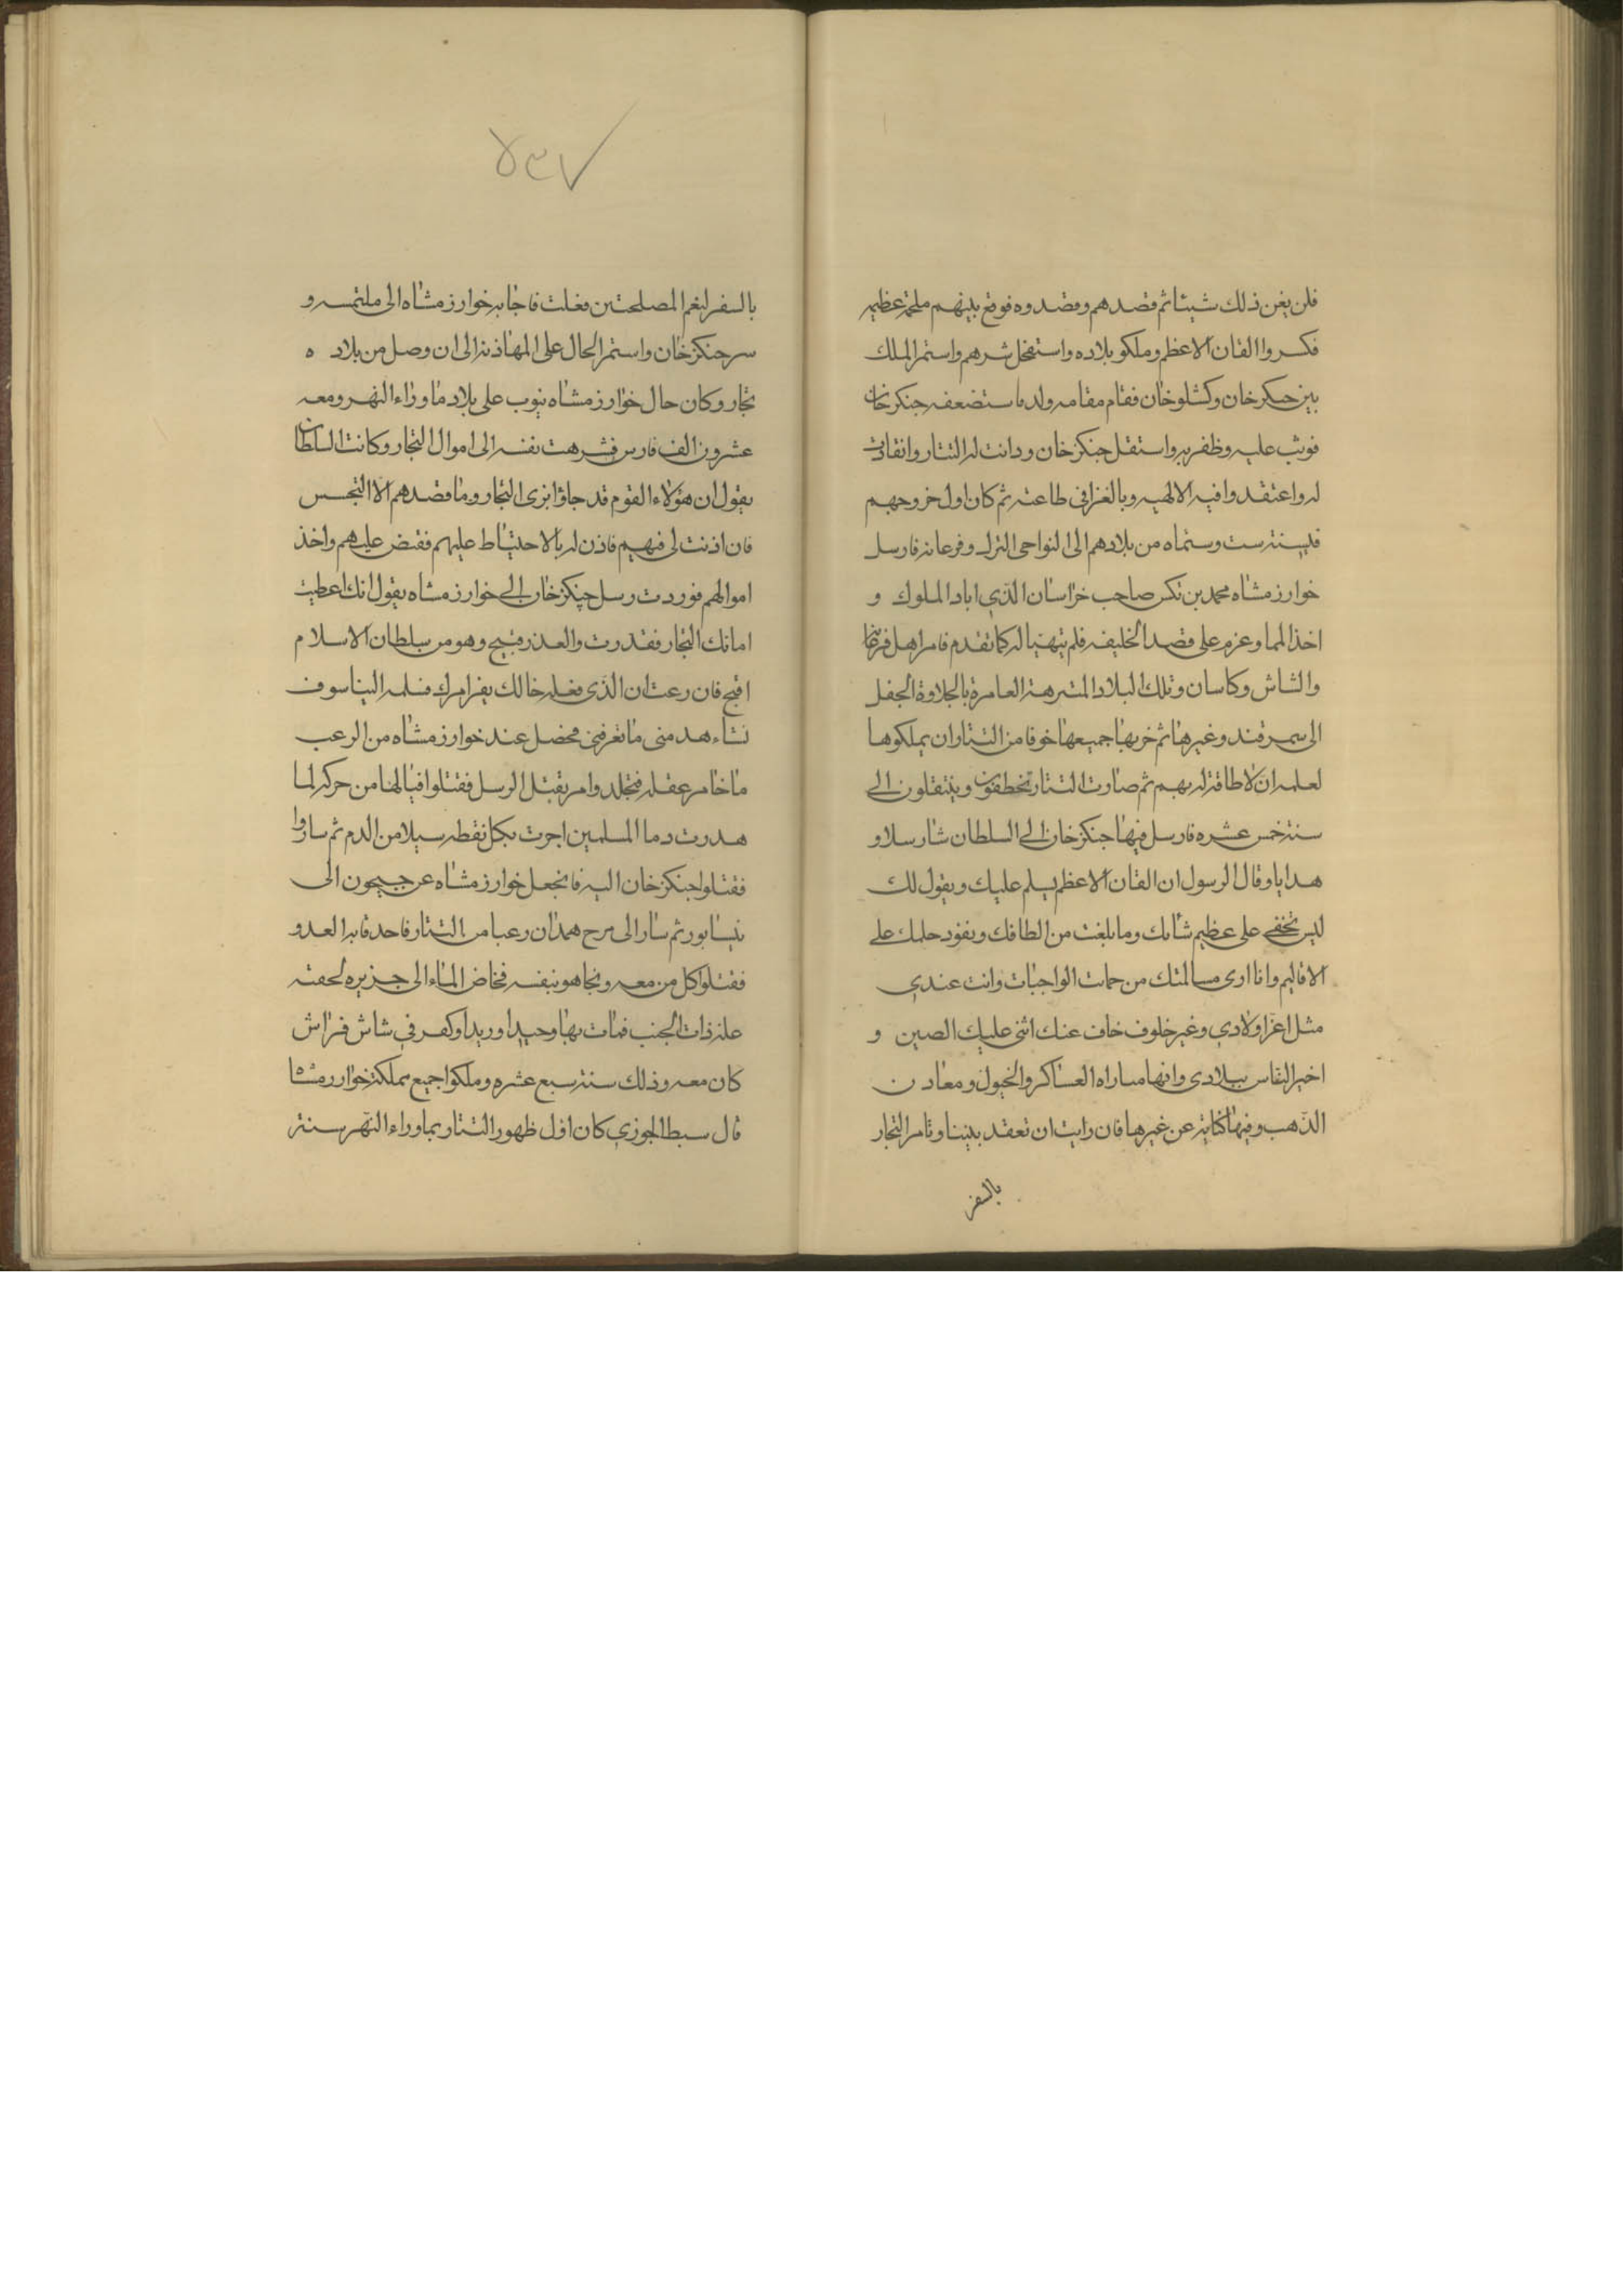 فلن يغن ذلك شيئا ثم قصدهم وقصدوه فوقع بينهم ملحمة عظيمه
فكسروا القان الاعظم وملكو بلاده واستفحل شرهم واستمر الملك
بين جنكرخان وكشلوخان فقام مقامه ولده استضعفه جنكرخان
فوثب عليه وظفر به واستقل جنكزخان ودانت له التتار وانقادت
له واعتقدوا فيه الالهيه وبالغزا في طاعته ثم كان اول خروجهم
في سنة ست وستماه من بلادهم الى النواحى الترك وفرغانه فارسل
خوارزمشاه محمد بن تكس صاحب خراسان الذي اباد الملوك و
اخذ المما وعزم على قصد الخليفه فلم يتهيا له كما تقدم فامر اهل فرغانه
والشاش وكاسان وتلك البلاد المنزهة العامرة بالجلاوة الجفل
الى سمرقند وغيرها ثم خربها جميعها خوفا من التتار ان يملكوها
لعلمه ان لا طاقة له بهم ثم صارت التتار تتخطفون وينتقلون الي
سنة خمس عشره فارسل فيها جنكزخان الي السلطان شارسلا و
هدايا وقال الرسول ان القان الاعظم يسلم عليك ويقول لك
ليس تخفي على عظيم شانك وما بلغت من الطافك ونفود حلمك علي
الاقاليم وانا ارى مسالمتك من جمات الواجبات وانت عندي
مثل اعز اولادي وغير خلوف خاف عنك انني عليك الصين و
اخبر النقاس ببلادى وانها مساراه العساكر والخيول ومعادن
الذهب وفيها كفاية عن غيرها فان رايت ان تعقد بيننا وتامر التجار
بالسفر
٧٣٤
بالسفر لنعم المصلحتين فغلت فاجابه خوارزمشاه الى ملتمسه و
سر جنكزخان واستمر الحال على المهاذنه الى ان وصل من بلاده
تجار وكان حال خوارزمشاه ينوب على بلاد ماوراء النهر ومعه
عشرون الف فارس فشرهت نفسه الى اموال التجار وكانت السلطان
يقول ان هؤلاء القوم قد جاؤا بزى التجار وما قصدهم الا التجسس
فان اذنت لى فيهم فاذن له بالاحتياط عليهم فقبض عليهم واخذ
اموالهم فوردت رسل چنكزخان الي خوارزمشاه يقول انك اعطيت
امانك التجار فقدرت والعذر قبيح وهو من سلطان الاسلام
اقبح فان زعت ان الذى فعله خالك بغير امرك فسلمه الينا سوف
نشاء هد منى ما تعرفني فحصل عند خوارزمشاه من الرعب
ما خامر عقله فتجلد وامر بقتل الرسل فقتلوا فيالها من حركه لما
هدرت دما المسلمين اجرت بكل نقطه سيلا من الدم ثم ساروا
فقتلوا جنكزخان اليه فانجعل خوارزمشاه عن جيحون الى
نيسابور ثم سار الى مرح همدان رعبا من التتار فاحدقا به العدو
فقتلوا كل من معه ونجا هو بنفسه فخاض الماء الى جزيره لحقته
علة ذات الجنب فمات بها وحيدا وريدا وكفر في شاش فراش
كان معه وذلك سنة سبع عشره وملكوا جميع مملكة خوارزمشاه
قال سبط الجوزي كان اول ظهور التتار بماوراء النهر سنة